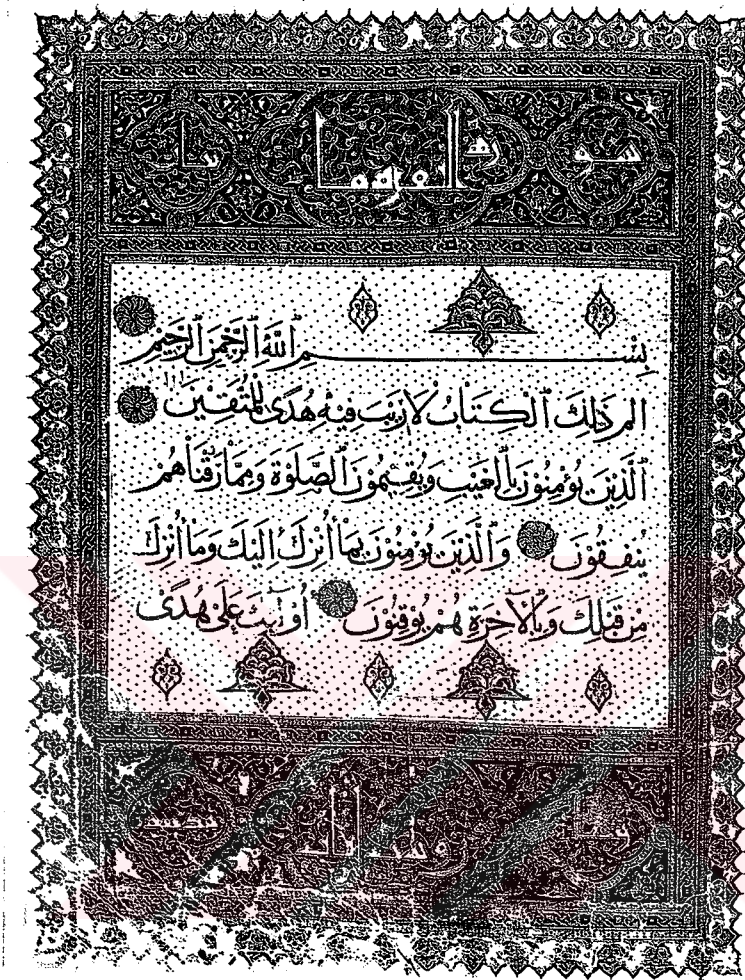 سورة البقرة
بِسْمِ ٱللَّهِ ٱلرَّحْمَنِ ٱلرَّحِيمِ
الم ذَلِكَ ٱلْكِتَابُ لَارَيْبَ فِيهِ هُدًى لِلْمُتَّقِينَ
ٱلَّذِينَ يُؤْمِنُونَ بِٱلْغَيْبِ وَيُقِيمُونَ ٱلصَّلَوٰةَ وَمِمَّا رَزَقْنَاهُمْ
يُنْفِقُونَ وَٱلَّذِينَ يُؤْمِنُونَ بِمَا أُنْزِلَ إِلَيْكَ وَمَا أُنْزِلَ
مِنْ قَبْلِكَ وَبِٱلْآخِرَةِ هُمْ يُوقِنُونَ أُولَٰئِكَ عَلَىٰ هُدًى